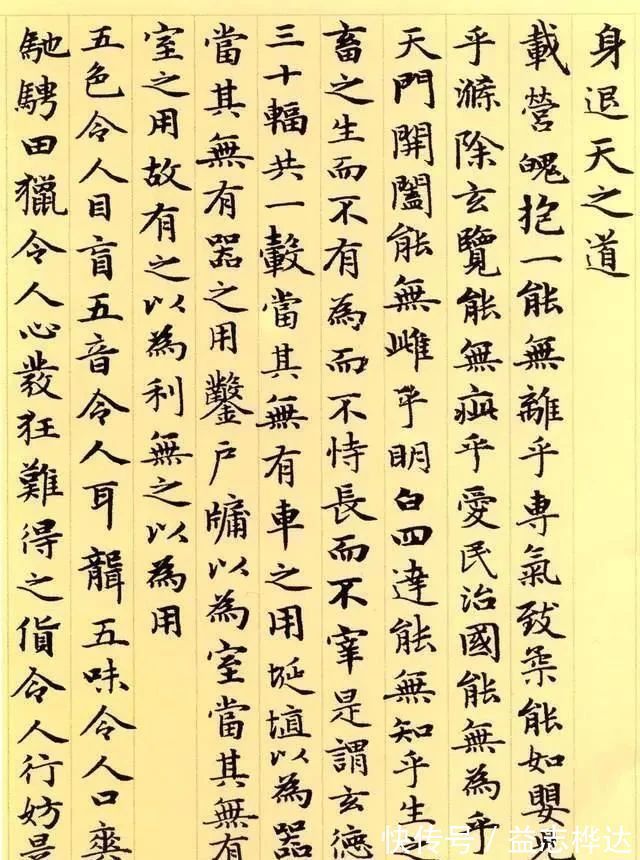 身退天之道
載營魄抱一能無離乎專氣致柔能如嬰
乎滌除玄覽能無疵乎愛民治國能無為乎
天門開闔能無雌乎明白四達能無知乎生之
畜之生而不有為而不恃長而不宰是謂玄德
三十輻共一轂當其無有車之用埏埴以為器
當其無有器之用鑿戶牖以為室當其無有
室之用故有之以為利無之以為用
五色令人目盲五音令人耳聾五味令人口爽
馳騁田獵令人心發狂難得之貨令人行妨是
快传号 / 益志桦达